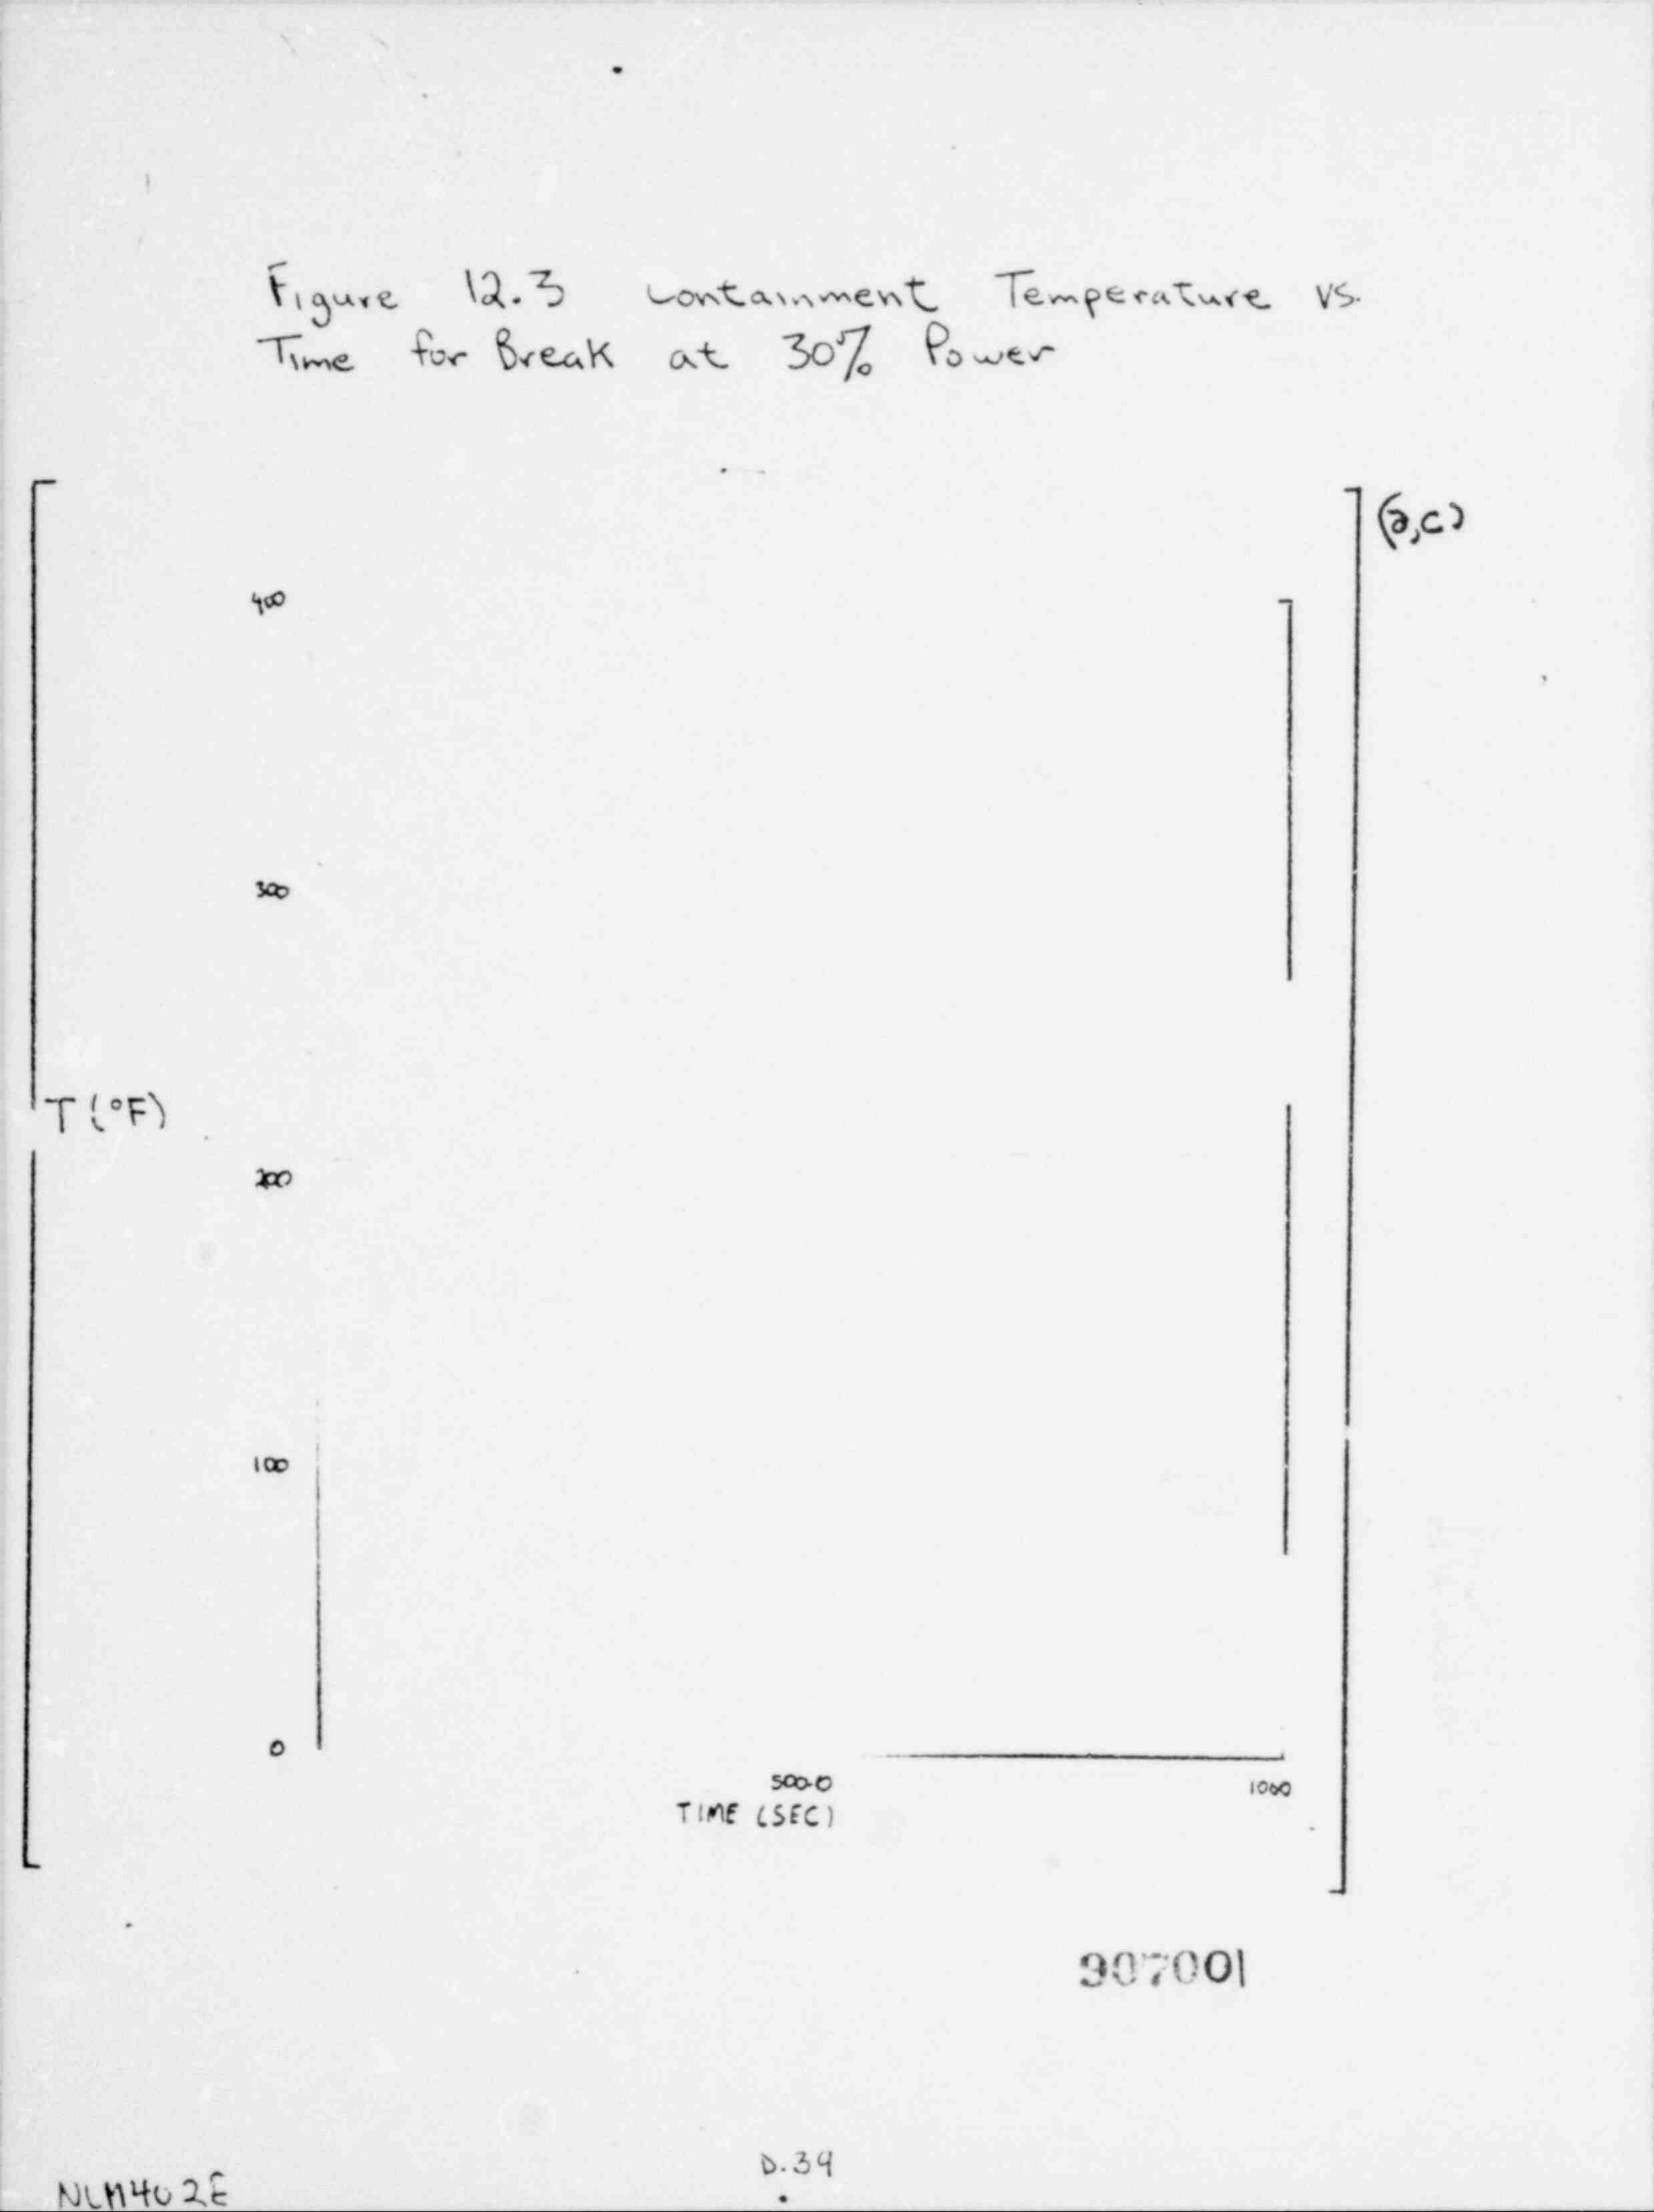 Figure 12.3 Containment Temperature vs.
Time for Break at 30% Power
(a,c)
400
300
T (°F)
200
100
0
500.0
1000
TIME (SEC)
907001
D.39